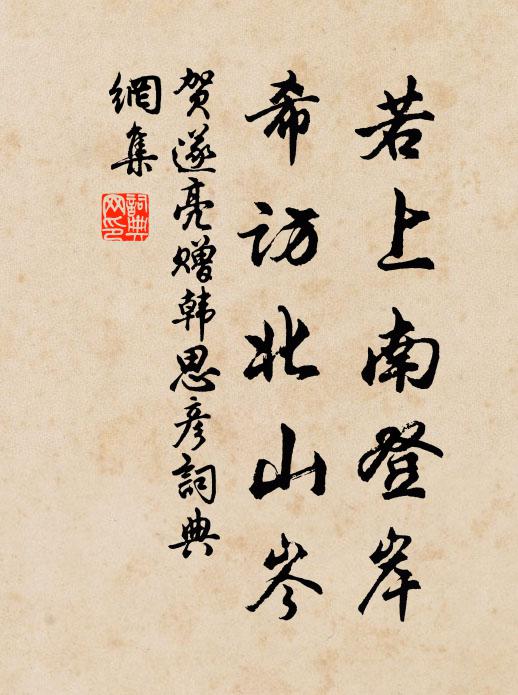 若上南登岸
希访北山岑
贺遂亮赠韩思彦詞典
網集
詞典
网印